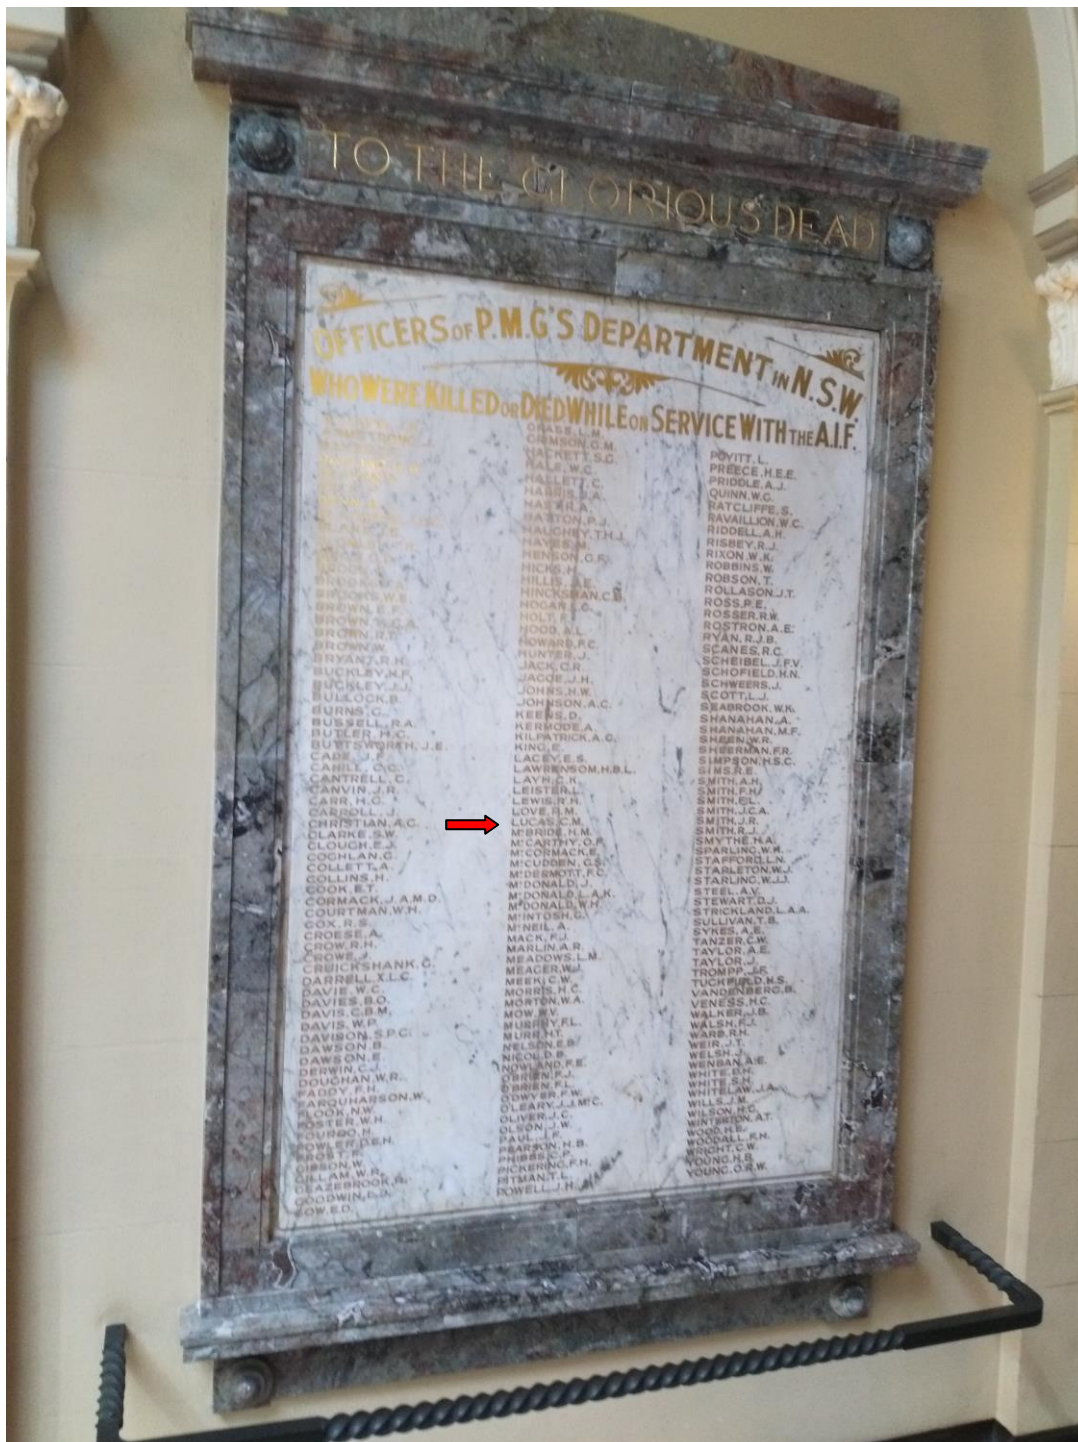 TO THE GLORIOUS DEAD
OFFICERS OF P.M.G'S DEPARTMENT IN N.S.W.
WHO WERE KILLED OR DIED WHILE ON SERVICE WITH THE A.I.F.
BROOKS, W.E.
BROWN, E.F.
BROWN, R.T.
BROWN, W.
BRYANT, R.H.
BUCKLEY, H.F.
BUCKLEY, J.J.
BULLOCK, B.
BURNS, G.
BUSSELL, R.A.
BUTLER, H.C.
BUTTSWORTH, J.E.
CADE, J.F.
CAHILL, C.C.
CANTRELL, C.
CANVIN, J.R.
CARR, H.G.
CARROLL, J.
CHRISTIAN, A.C.
CLARKE, S.W.
CLOUGH, E.J.
COGHLAN, G.
COLLETT, A.
COLLINS, H.
COOK, E.T.
CORMACK, J.A.M.D.
COURTMAN, W.H.
COX, R.S.
CROESE, A.
CROW, R.H.
CROWE, J.
CRUICKSHANK, G.
DARRELL, X.L.C.
DAVIE, W.C.
DAVIES, B.O.
DAVIS, C.B.M.
DAVIS, W.P.
DAVISON, S.P.C.
DAWSON, B.
DAWSON, E.
DERWIN, C.J.
DOUGHAN, W.R.
FADDY, F.H.
FARQUHARSON, W.
FLOOK, N.W.
FOSTER, W.H.
FOURRO, H.
FOWLER, D.E.H.
FROST, F.
GIBSON, W.
GILLAM, W.R.
GLAZEBROOK, R.
GOODWIN, E.D.
GOW, E.D.
GRASS, L.M.
GRIMSON, G.M.
HACKETT, S.G.
HALE, W.C.
HALLETT, C.
HARRIS, J.A.
HASTON, P.J.
HAUGHEY, T.H.J.
HAYES, M.
HENSON, G.F.
HICKS, H.
HILLIS, J.E.
HINCKSMAN, C.B.
HOGAN, L.G.
HOLT, F.
HOOD, A.L.
HOWARD, F.C.
HUNTER, J.
JACK, C.R.
JACOE, J.H.
JOHNS, H.W.
JOHNSON, A.C.
KEENS, D.
KERMODE, A.
KILPATRICK, A.G.
KING, E.
LACEY, E.S.
LAWRENSOM, H.B.L.
LAYH, C.K.
LEISTER, L.
LEWIS, R.H.
LOVE, R.M.
LUCAS, C.M.
McBRIDE, H.M.
McCARTHY, O.F.
McCORMACK, E.
McCUDDEN, G.S.
McDERMOTT, F.C.
McDONALD, J.
McDONALD, L.A.K.
McDONALD, W.H.
McINTOSH, G.
McNEIL, A.
MACK, F.J.
MARLIN, A.R.
MEADOWS, L.M.
MEAGER, W.J.
MEEK, C.W.
MORRIS, H.C.
MORTON, W.A.
MOW, W.V.
MURPHY, F.L.
MURR, H.T.
NELSON, E.B.
NICOL, D.B.
NOWLAND, F.E.
O'BRIEN, F.J.
O'BRIEN, F.L.
O'DWYER, F.W.
O'LEARY, J.J.McC.
OLIVER, J.C.
OLSON, J.W.
PAUL, J.F.
PEARSON, H.B.
PHIBBS, C.P.
PICKERING, F.H.
PITMAN, T.L.
POWELL, J.H.
POVITT, L.
PREECE, H.E.E.
PRIDDLE, A.J.
QUINN, W.G.
RATCLIFFE, S.
RAVAILLION, W.C.
RIDDELL, A.H.
RISBEY, R.J.
RIXON, W.K.
ROBBINS, W.
ROBSON, T.
ROLLASON, J.T.
ROSS, P.E.
ROSSER, R.W.
ROSTRON, A.E.
RYAN, R.J.B.
SCANES, R.C.
SCHEIBEL, J.F.V.
SCHOFIELD, H.N.
SCHWEERS, J.
SCOTT, L.J.
SEABROOK, W.K.
SHANAHAN, A.
SHANAHAN, M.F.
SHEEN, W.R.
SHEERMAN, F.R.
SIMPSON, H.S.C.
SIMS, R.E.
SMITH, A.H.
SMITH, F.H.
SMITH, E.L.
SMITH, J.C.A.
SMITH, J.R.
SMITH, R.J.
SMYTHE, H.A.
SPARLING, W.K.
STAFFORD, L.N.
STAPLETON, W.J.
STARLING, W.J.J.
STEEL, A.V.
STEWART, D.J.
STRICKLAND, L.A.A.
SULLIVAN, T.B.
SYKES, A.E.
TANZER, C.W.
TAYLOR, A.E.
TAYLOR, J.
TROMPP, J.F.
TUCKFIELD, H.S.
VANDENBERG, B.
VENESS, H.C.
WALKER, J.B.
WALSH, F.J.
WARD, R.H.
WEIR, J.T.
WELSH, J.
WENBAN, A.E.
WHITE, D.H.
WHITE, S.H.
WHITELAW, J.A.
WILLS, J.M.
WILSON, H.C.
WINTERTON, A.T.
WOOD, H.E.
WOODALL, F.H.
WRIGHT, C.W.
YOUNG, H.B.
YOUNG, O.R.W.